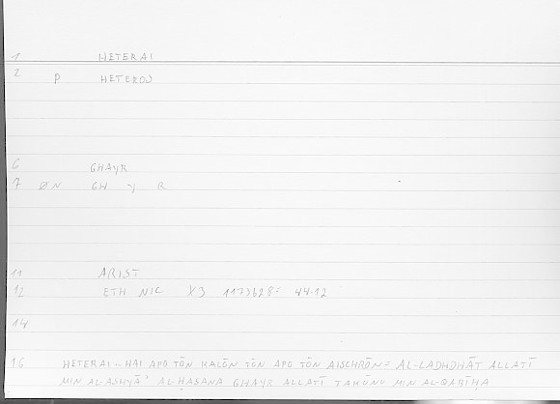 1 HETERAI
2 P HETEROS
6 GHAYR
7 ØN GH Y R
11 ARIST
12 ETH NIC X3 1173b28= 44.12
14
16 HETERAI - HAI APO TŌN KALŌN TŌN APO TŌN AISCHRŌN = AL-LADHDHĀT ALLATĪ
MIN AL-ASHYĀʾ AL-ḤASANA GHAYR ALLATĪ TAKŪNU MIN AL-QABĪḤA